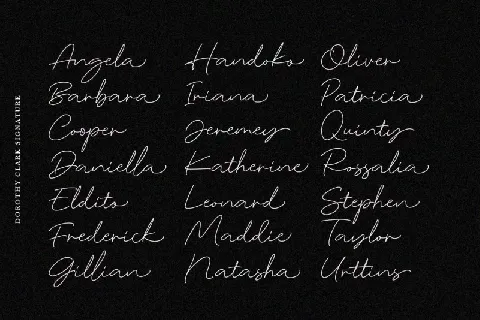 DOROTHY CLARK SIGNATURE
Angela
Barbara
Cooper
Daniella
Eldito
Frederick
Gillian
Handoko
Iriana
Jeremey
Katherine
Leonard
Maddie
Natasha
Oliver
Patricia
Quinty
Rossalia
Stephen
Taylor
Urttins